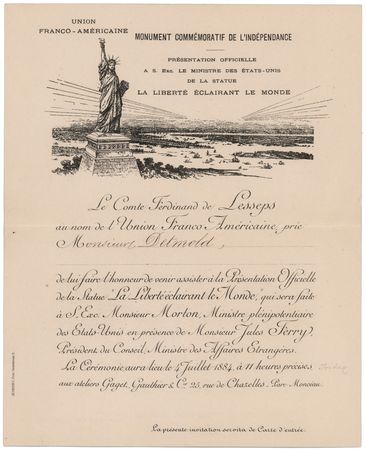 UNION
FRANCO-AMÉRICAINE
MONUMENT COMMÉMORATIF DE L'INDÉPENDANCE
PRÉSENTATION OFFICIELLE
A S. EXC. LE MINISTRE DES ÉTATS-UNIS
DE LA STATUE
LA LIBERTÉ ÉCLAIRANT LE MONDE
Le Comte Ferdinand de Lesseps
au nom de l'Union Franco Américaine, prie
Monsieur Detmold
de lui faire l'honneur de venir assister à la Présentation Officielle
de la Statue "La Liberté éclairant le Monde, qui sera faite
à S. Exc. Monsieur Morton, Ministre plénipotentiaire
des Etats Unis en présence de Monsieur Jules Ferry,
Président du Conseil, Ministre des Affaires Etrangères.
La Cérémonie aura lieu le 4 Juillet 1884, à 11 heures précises
aux ateliers Gaget, Gauthier & Cie 25, rue de Chazelles, Parc Monceau.
La présente invitation servira de Carte d'entrée.